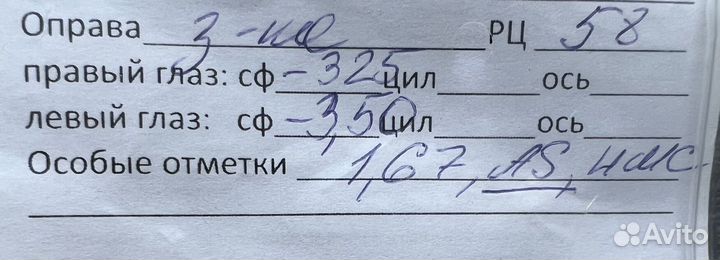 Оправа з-ка РЦ 58
правый глаз: сф -325 цил ось
левый глаз: сф -3,50 цил ось
Особые отметки 1,67, AS,
Avito